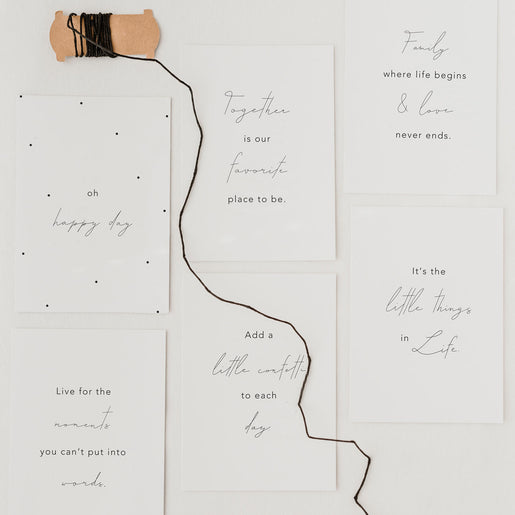 Family
where life begins
& love
never ends.
Together
is our
favorite
place to be.
oh
happy day
It's the
little things
in Life.
Add a
little confetti
to each
day
Live for the
moments
you can't put into
words.